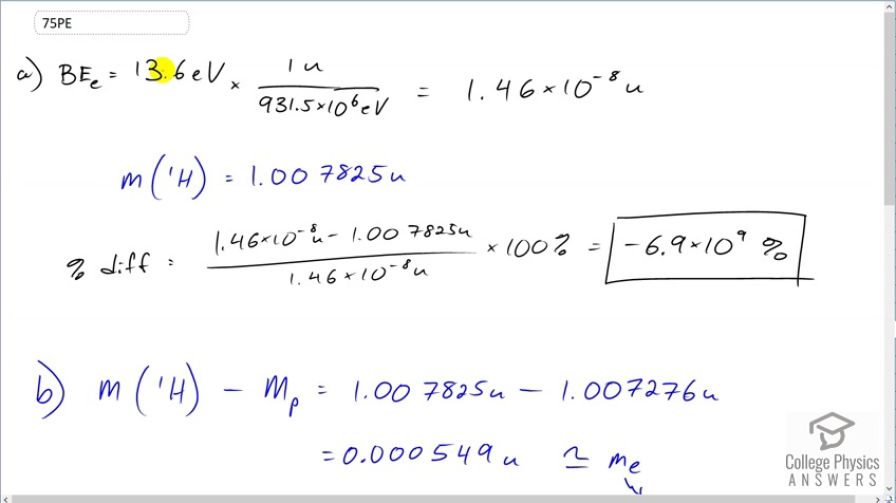 75PE
a) BEe = 13.6 eV × 1 u / 931.5×10⁶ eV = 1.46×10⁻⁸ u
m(¹H) = 1.007825u
% diff = 1.46×10⁻⁸u − 1.007825u / 1.46×10⁻⁸u × 100% = −6.9×10⁹ %
b) m(¹H) − Mp = 1.007825u − 1.007276u
= 0.000549u ≃ me
College Physics
ANSWERS